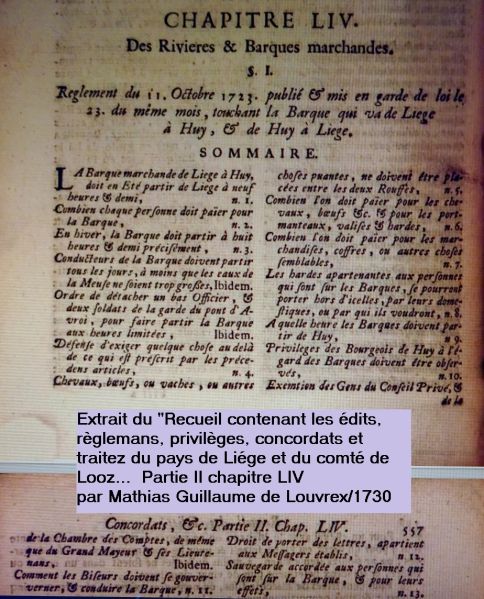 CHAPITRE LIV.
Des Rivieres & Barques marchandes.
S. I.
Reglement du 11. Octobre 1723. publié & mis en garde de loi le
23. du même mois, touchant la Barque qui va de Liege
à Huy, & de Huy à Liege.
SOMMAIRE.
LA Barque marchande de Liege à Huy,
doit en Eté partir de Liege à neuf
heures & demi, n. 1.
Combien chaque personne doit païer pour
la Barque, n. 2.
En hiver, la Barque doit partir à huit
heures & demi précisément, n. 3.
Conducteurs de la Barque doivent partir
tous les jours, à moins que les eaux de
la Meuse ne soient trop grosses, Ibidem.
Ordre de détacher un bas Officier, &
deux soldats de la garde du pont d'A-
vroi, pour faire partir la Barque
aux heures limitées, Ibidem.
Défense d'exiger quelque chose au delà
de ce qui est préscrit par les préce-
dens articles, n. 4.
Chevaux, bœufs, ou vaches, ou autres
choses puantes, ne doivent être pla-
cées entre les deux Rouffes, n. 5.
Combien l'on doit païer pour les che-
vaux, bœufs &c. & pour les port-
manteaux, valises & hardes, n. 6.
Combien l'on doit païer pour les mar-
chandises, coffres, ou autres choses
semblables, n. 7.
Les hardes apartenantes aux personnes
qui sont sur les Barques, se pourront
porter hors d'icelles, par leurs dome-
stiques, ou par qui ils voudront, n. 8.
A quelle heure les Barques doivent par-
tir de Huy, n. 9.
Privileges des Bourgeois de Huy à l'é-
gard des Barques doivent être obser-
vés, n. 10.
Exemtion des Gens du Conseil Privé, &
de la
Extrait du "Recueil contenant les édits,
règlemans, privilèges, concordats et
traitez du pays de Liége et du comté de
Looz... Partie II chapitre LIV
par Mathias Guillaume de Louvrex/1730
Concordats, &c. Partie II. Chap. LIV. 557
de la Chambre des Comptes, de même
que du Grand Mayeur & ses Lieute-
nans, Ibidem.
Comment les Biseurs doivent se gouver-
verner, & conduire la Barque, n. 11.
Droit de porter des lettres, apartient
aux Messagers établis, n. 12.
Sauvegarde accordée aux personnes qui
sont sur la Barque, & pour leurs
effets, n. 13.